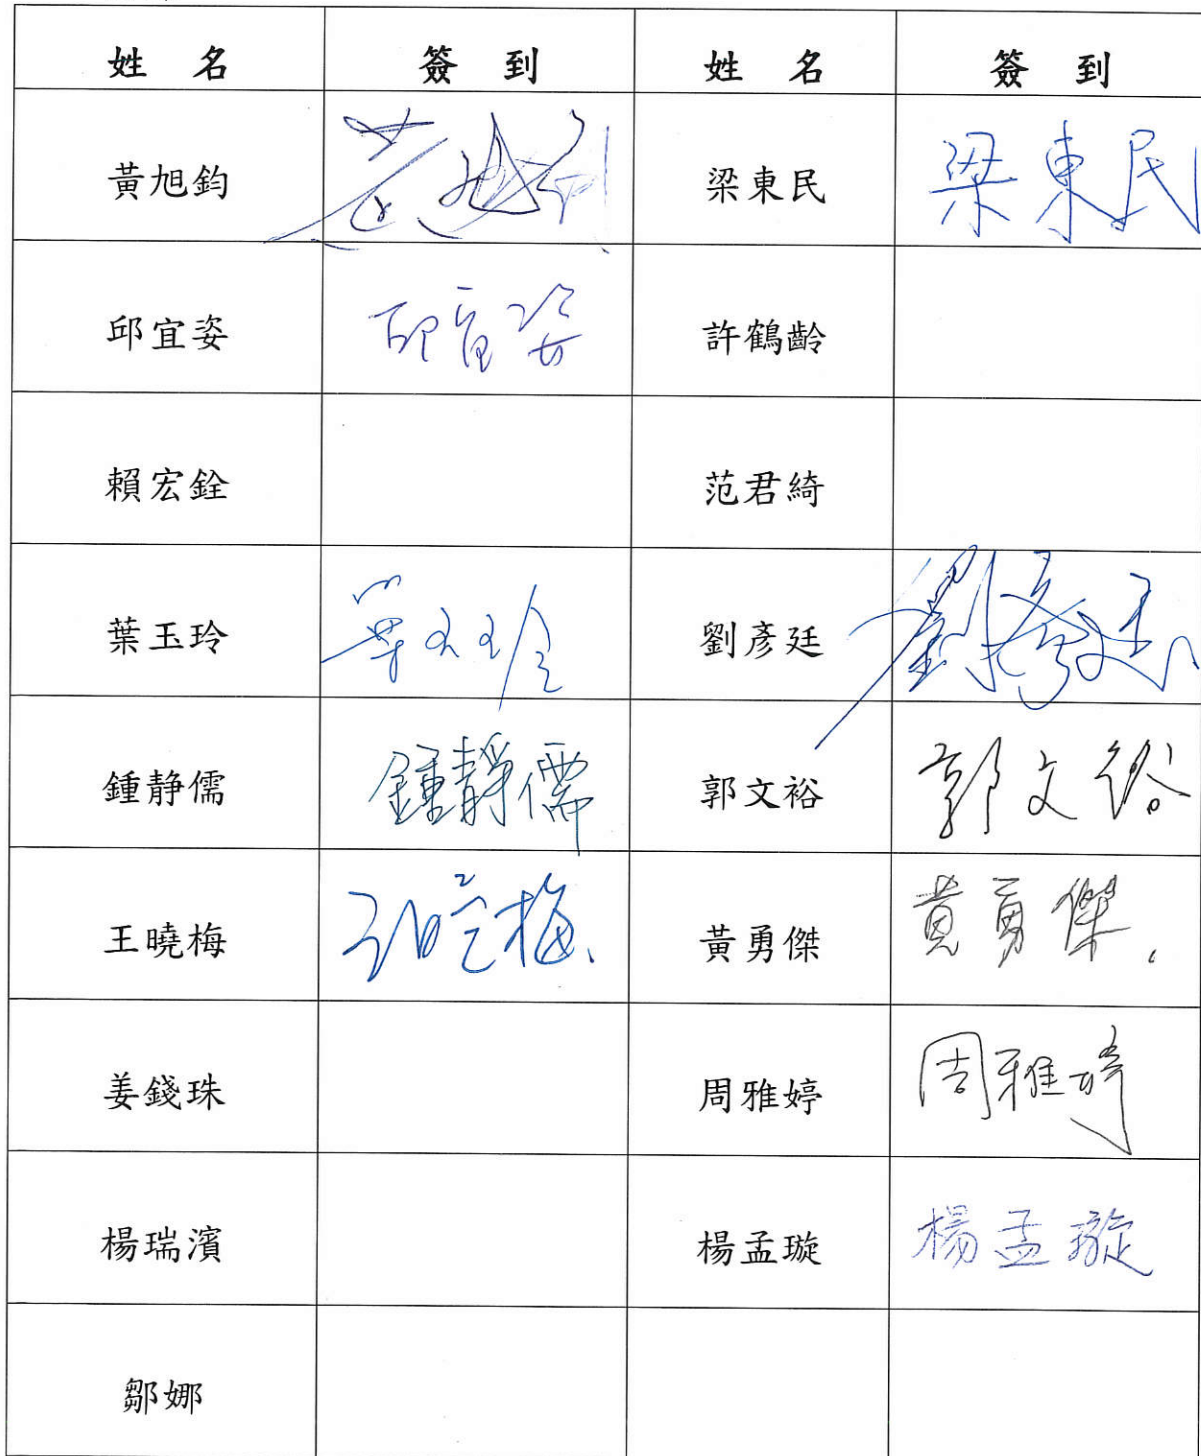 姓 名 簽 到 姓 名 簽 到
黃旭鈞 黃旭鈞 梁東民 梁東民
邱宜姿 邱宜姿 許鶴齡
賴宏銓 范君綺
葉玉玲 葉玉玲 劉彥廷 劉彥廷
鍾静儒 鍾靜儒 郭文裕 郭文裕
王曉梅 王曉梅 黃勇傑 黃勇傑
姜錢珠 周雅婷 周雅婷
楊瑞濱 楊孟璇 楊孟璇
鄒娜